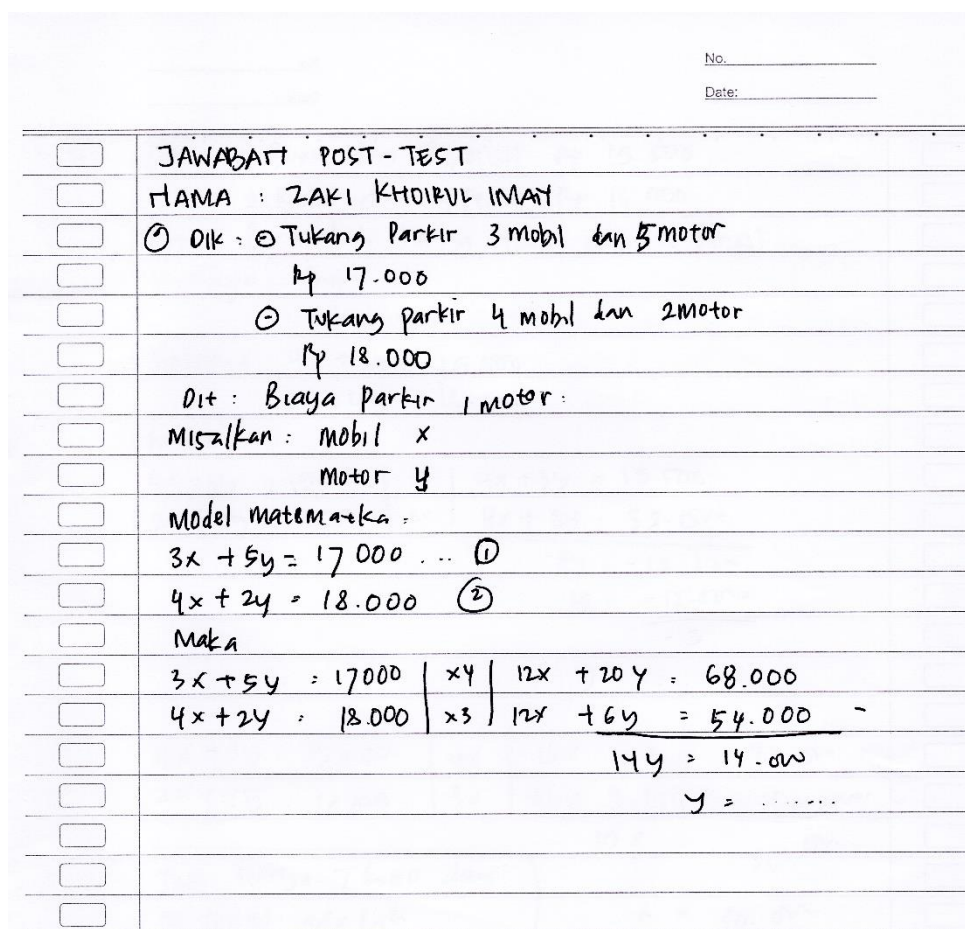 No.
Date:
JAWABAN POST-TEST
NAMA : ZAKI KHOIRUL IMAN
Dik : Tukang Parkir 3 mobil dan 5 motor
Rp 17.000
Tukang parkir 4 mobil dan 2 motor
Rp 18.000
Dit : Biaya Parkir 1 motor :
Misalkan : mobil x
motor y
Model matematka :
3x + 5y = 17 000 ... ①
4x + 2y = 18.000 ②
Maka
3x + 5y = 17000 | x4 | 12x + 20y = 68.000
4x + 2y = 18.000 | x3 | 12x + 6y = 54.000 -
14y = 14.000
y = .......